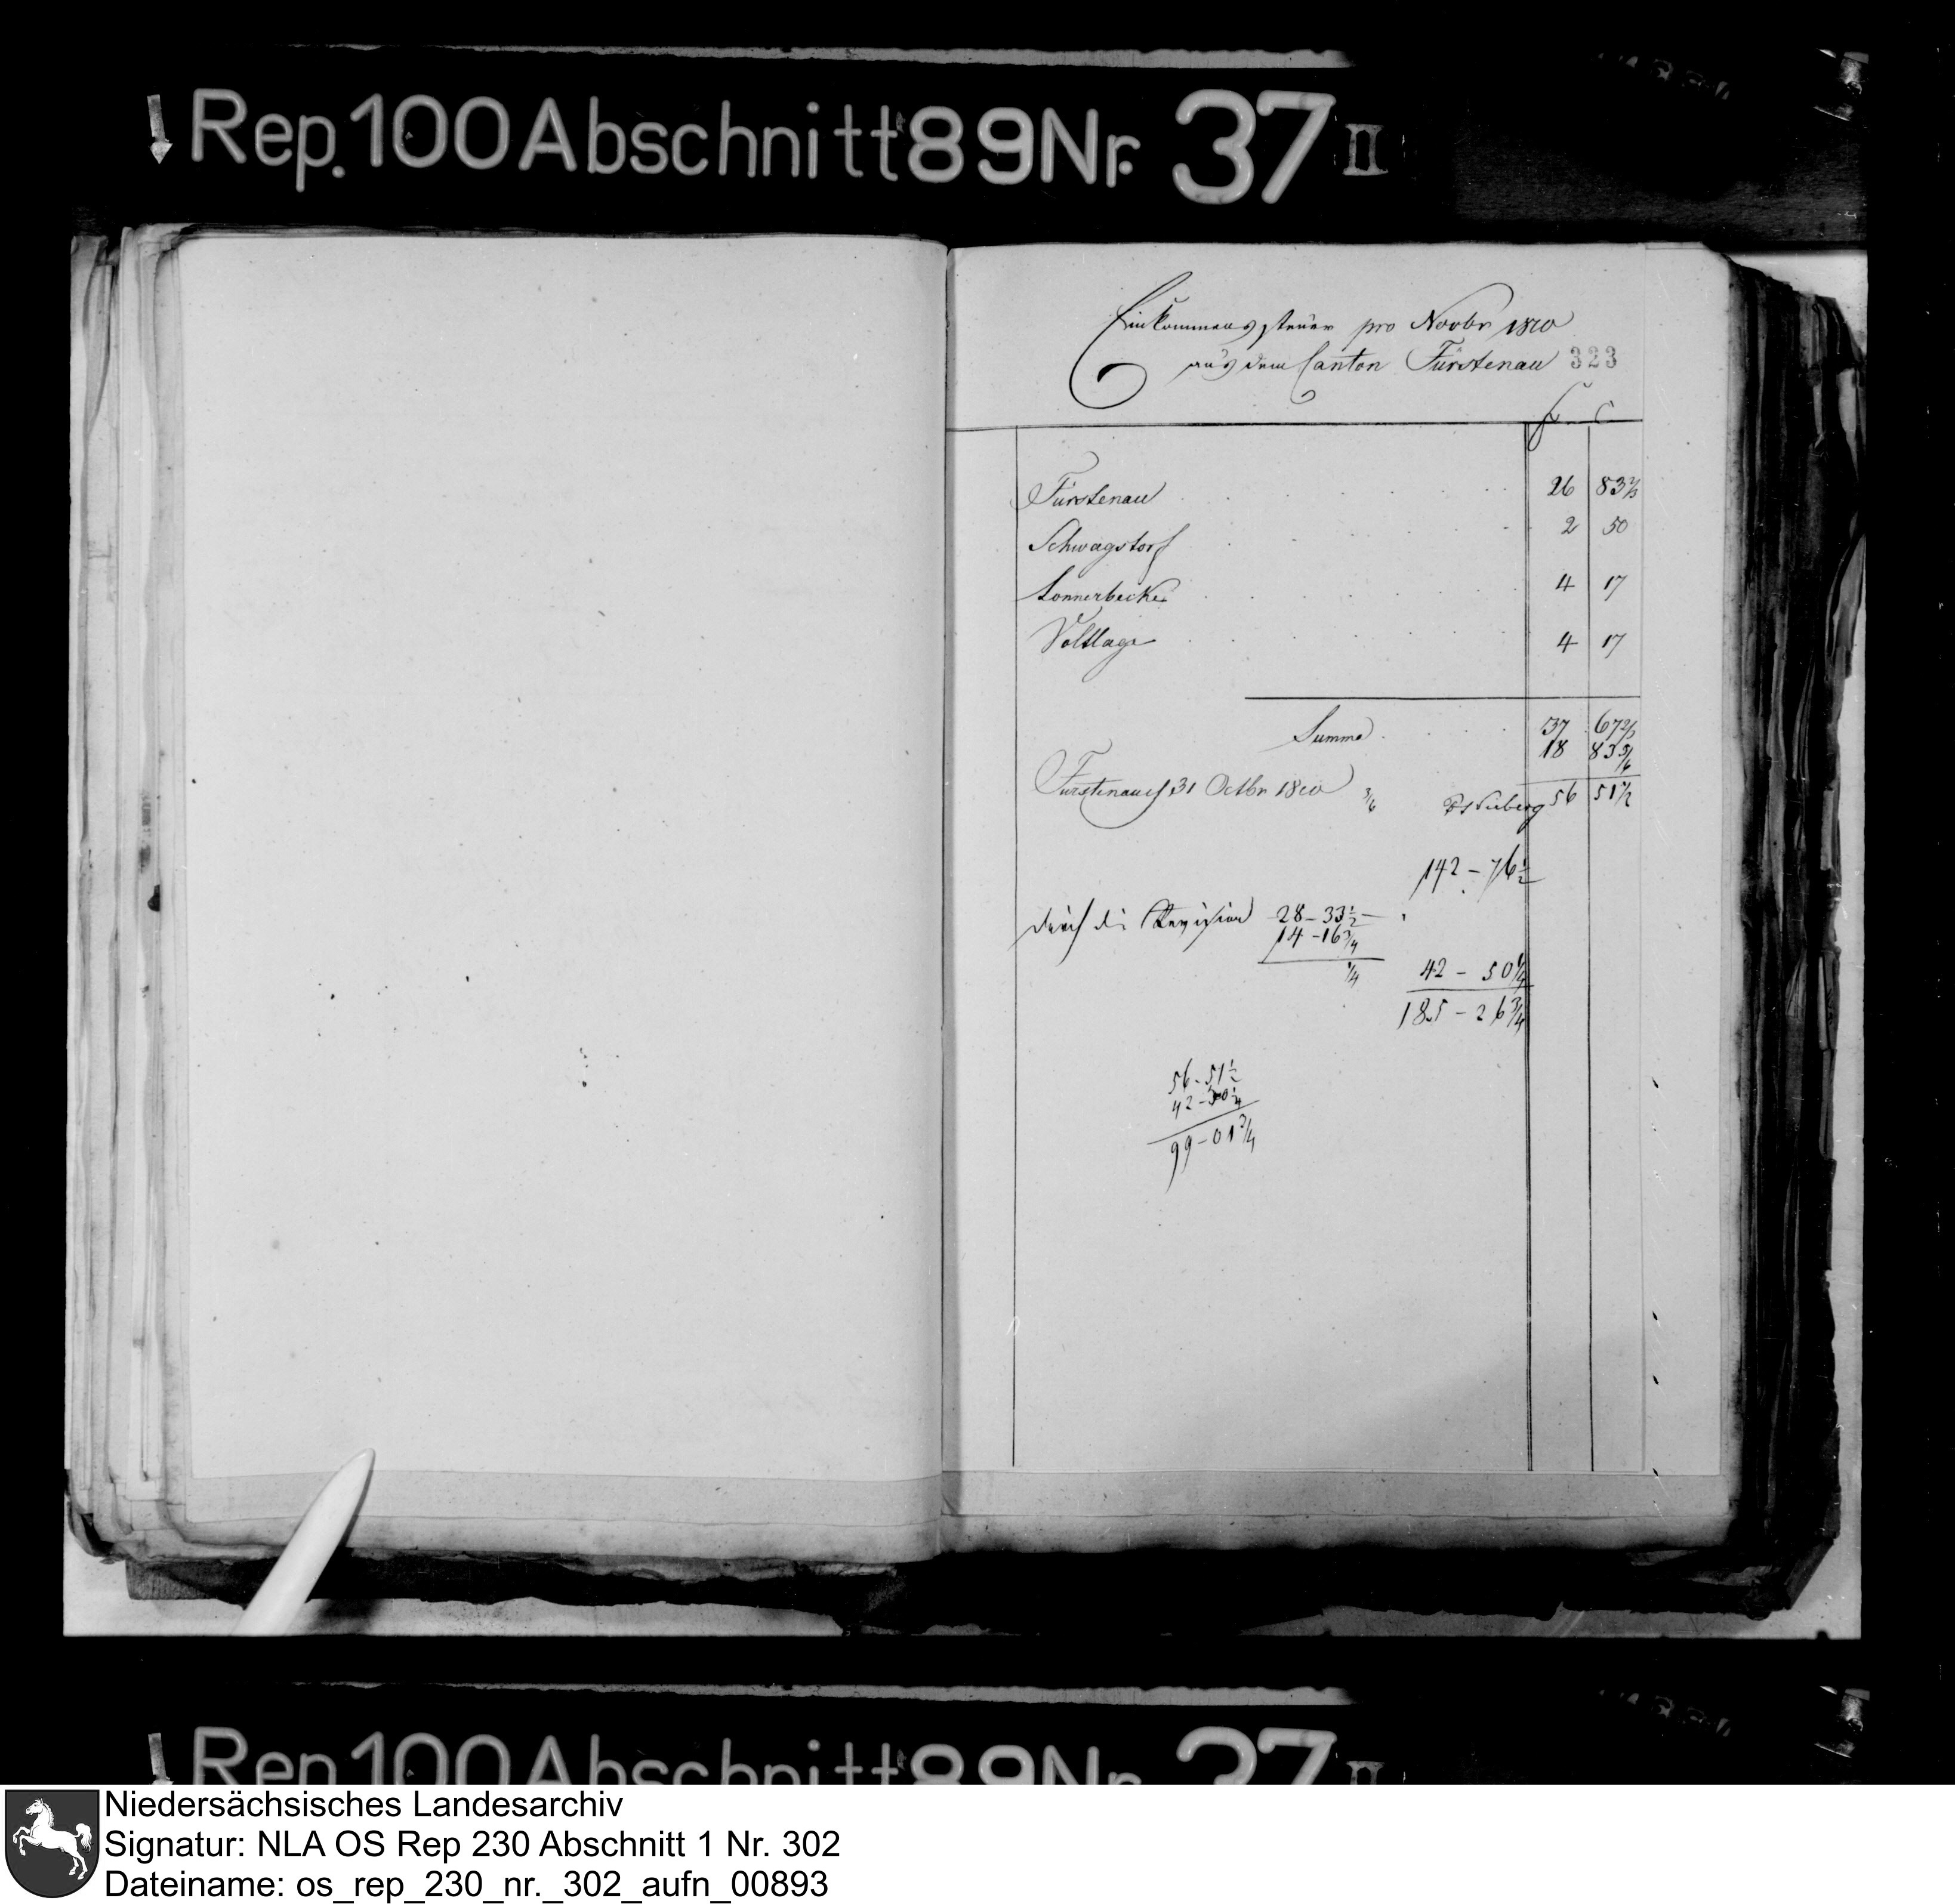 Rep. 100 Abschnitt 89 Nr. 37 II
Einkommenssteuer pro Novbr 1810
aus dem Canton Fürstenau 323
f C
Fürstenau 26 83 2/3
Schwagstorf 2 50
Lonnerbecke 4 17
Voltlage 4 17
Summe 37 67 2/3
18 83 5/6
Fürstenau d 31 Octbr 1810 3/6 56 51 1/2
142 - 76 1/2
durch die Revision 28 - 33 1/2
14 - 16 3/4
1/4 42 - 50 1/4
185 - 26 3/4
56 - 51 1/2
42 - 50 1/4
99 - 01 3/4
Rep. 100 Abschnitt 89 Nr. 37 II
Niedersächsisches Landesarchiv
Signatur: NLA OS Rep 230 Abschnitt 1 Nr. 302
Dateiname: os_rep_230_nr._302_aufn_00893